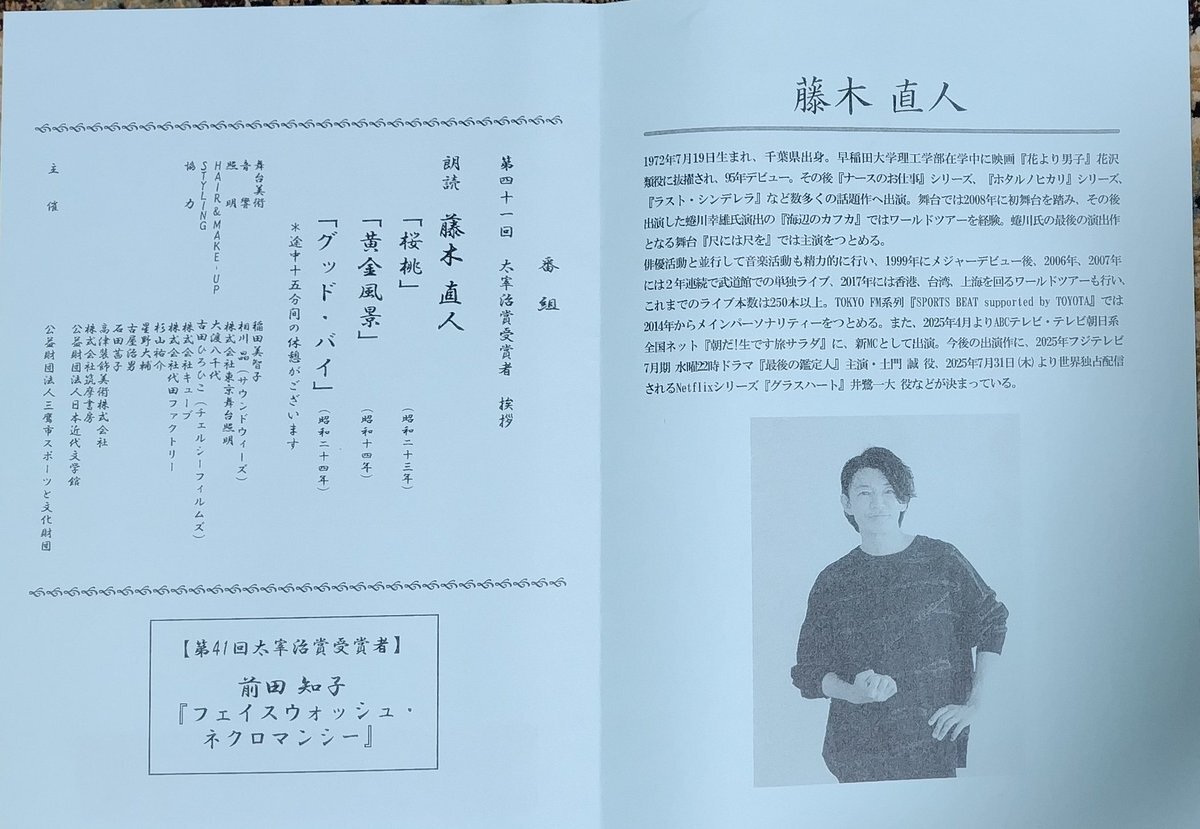 番組
第四十一回 太宰治賞受賞者 挨拶
朗読 藤木 直人
「桜桃」 (昭和二十三年)
「黄金風景」 (昭和十四年)
「グッド・バイ」 (昭和二十四年)
＊途中十五分間の休憩がございます
舞台美術 稲田美智子
音響 相川 晶(サウンドウィーズ)
照明 株式会社東京舞台照明
HAIR&MAKE-UP 大渡八千代
STYLING 古田ひろひこ(チェルシーフィルムズ)
協力 株式会社キューブ
株式会社代田ファクトリー
杉山裕介
星野大輔
古屋治男
石田茜子
高津装飾美術株式会社
株式会社筑摩書房
公益財団法人日本近代文学館
主催 公益財団法人三鷹市スポーツと文化財団
【第41回太宰治賞受賞者】
前田 知子
『フェイスウォッシュ・
ネクロマンシー』
藤木 直人
1972年7月19日生まれ、千葉県出身。早稲田大学理工学部在学中に映画『花より男子』花沢
類役に抜擢され、95年デビュー。その後『ナースのお仕事』シリーズ、『ホタルノヒカリ』シリーズ、
『ラスト・シンデレラ』など数多くの話題作へ出演。舞台では2008年に初舞台を踏み、その後
出演した蜷川幸雄氏演出の『海辺のカフカ』ではワールドツアーを経験。蜷川氏の最後の演出作
となる舞台『尺には尺を』では主演をつとめる。
俳優活動と並行して音楽活動も精力的に行い、1999年にメジャーデビュー後、2006年、2007年
には２年連続で武道館での単独ライブ、2017年には香港、台湾、上海を回るワールドツアーも行い、
これまでのライブ本数は250本以上。TOKYO FM系列『SPORTS BEAT supported by TOYOTA』では
2014年からメインパーソナリティーをつとめる。また、2025年4月よりABCテレビ・テレビ朝日系
全国ネット『朝だ!生です旅サラダ』に、新MCとして出演。今後の出演作に、2025年フジテレビ
7月期 水曜22時ドラマ『最後の鑑定人』主演・土門 誠 役、2025年7月31日(木)より世界独占配信
されるNetflixシリーズ『グラスハート』井鷺一大 役などが決まっている。